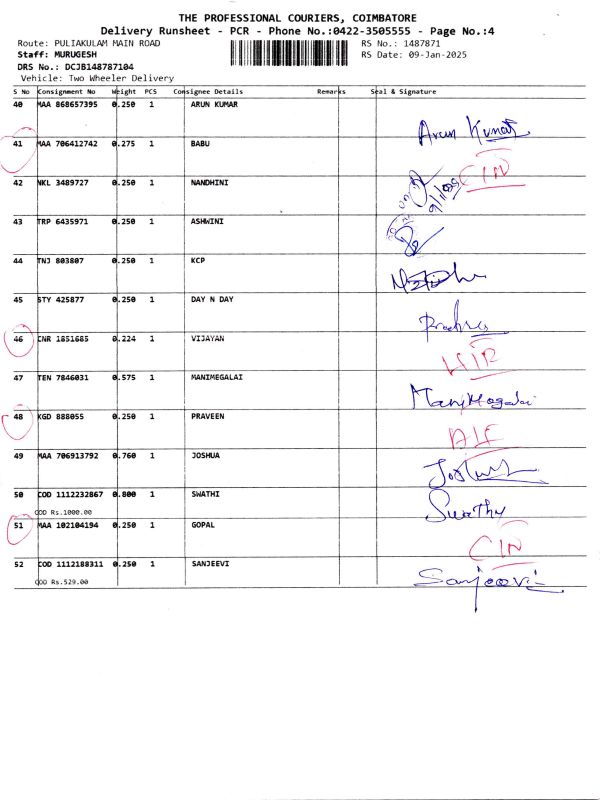 THE PROFESSIONAL COURIERS, COIMBATORE
Delivery Runsheet - PCR - Phone No.:0422-3505555 - Page No.:4
Route: PULIAKULAM MAIN ROAD RS No.: 1487871
Staff: MURUGESH RS Date: 09-Jan-2025
DRS No.: DCJB148787104
Vehicle: Two Wheeler Delivery
S No Consignment No Weight PCS Consignee Details Remarks Seal & Signature
40 MAA 868657395 0.250 1 ARUN KUMAR Arun Kumar
41 MAA 706412742 0.275 1 BABU CIN
42 NKL 3489727 0.250 1 NANDHINI
43 TRP 6435971 0.250 1 ASHWINI
44 TNJ 803807 0.250 1 KCP
45 STY 425877 0.250 1 DAY N DAY
46 CNR 1851685 0.224 1 VIJAYAN
47 TEN 7846031 0.575 1 MANIMEGALAI Manimegalai
48 KGD 888055 0.250 1 PRAVEEN
49 MAA 706913792 0.760 1 JOSHUA Joshua
50 COD 1112232867 0.800 1 SWATHI Swathy
COD Rs.1000.00
51 MAA 102104194 0.250 1 GOPAL CIN
52 COD 1112188311 0.250 1 SANJEEVI Sanjeevi
COD Rs.529.00